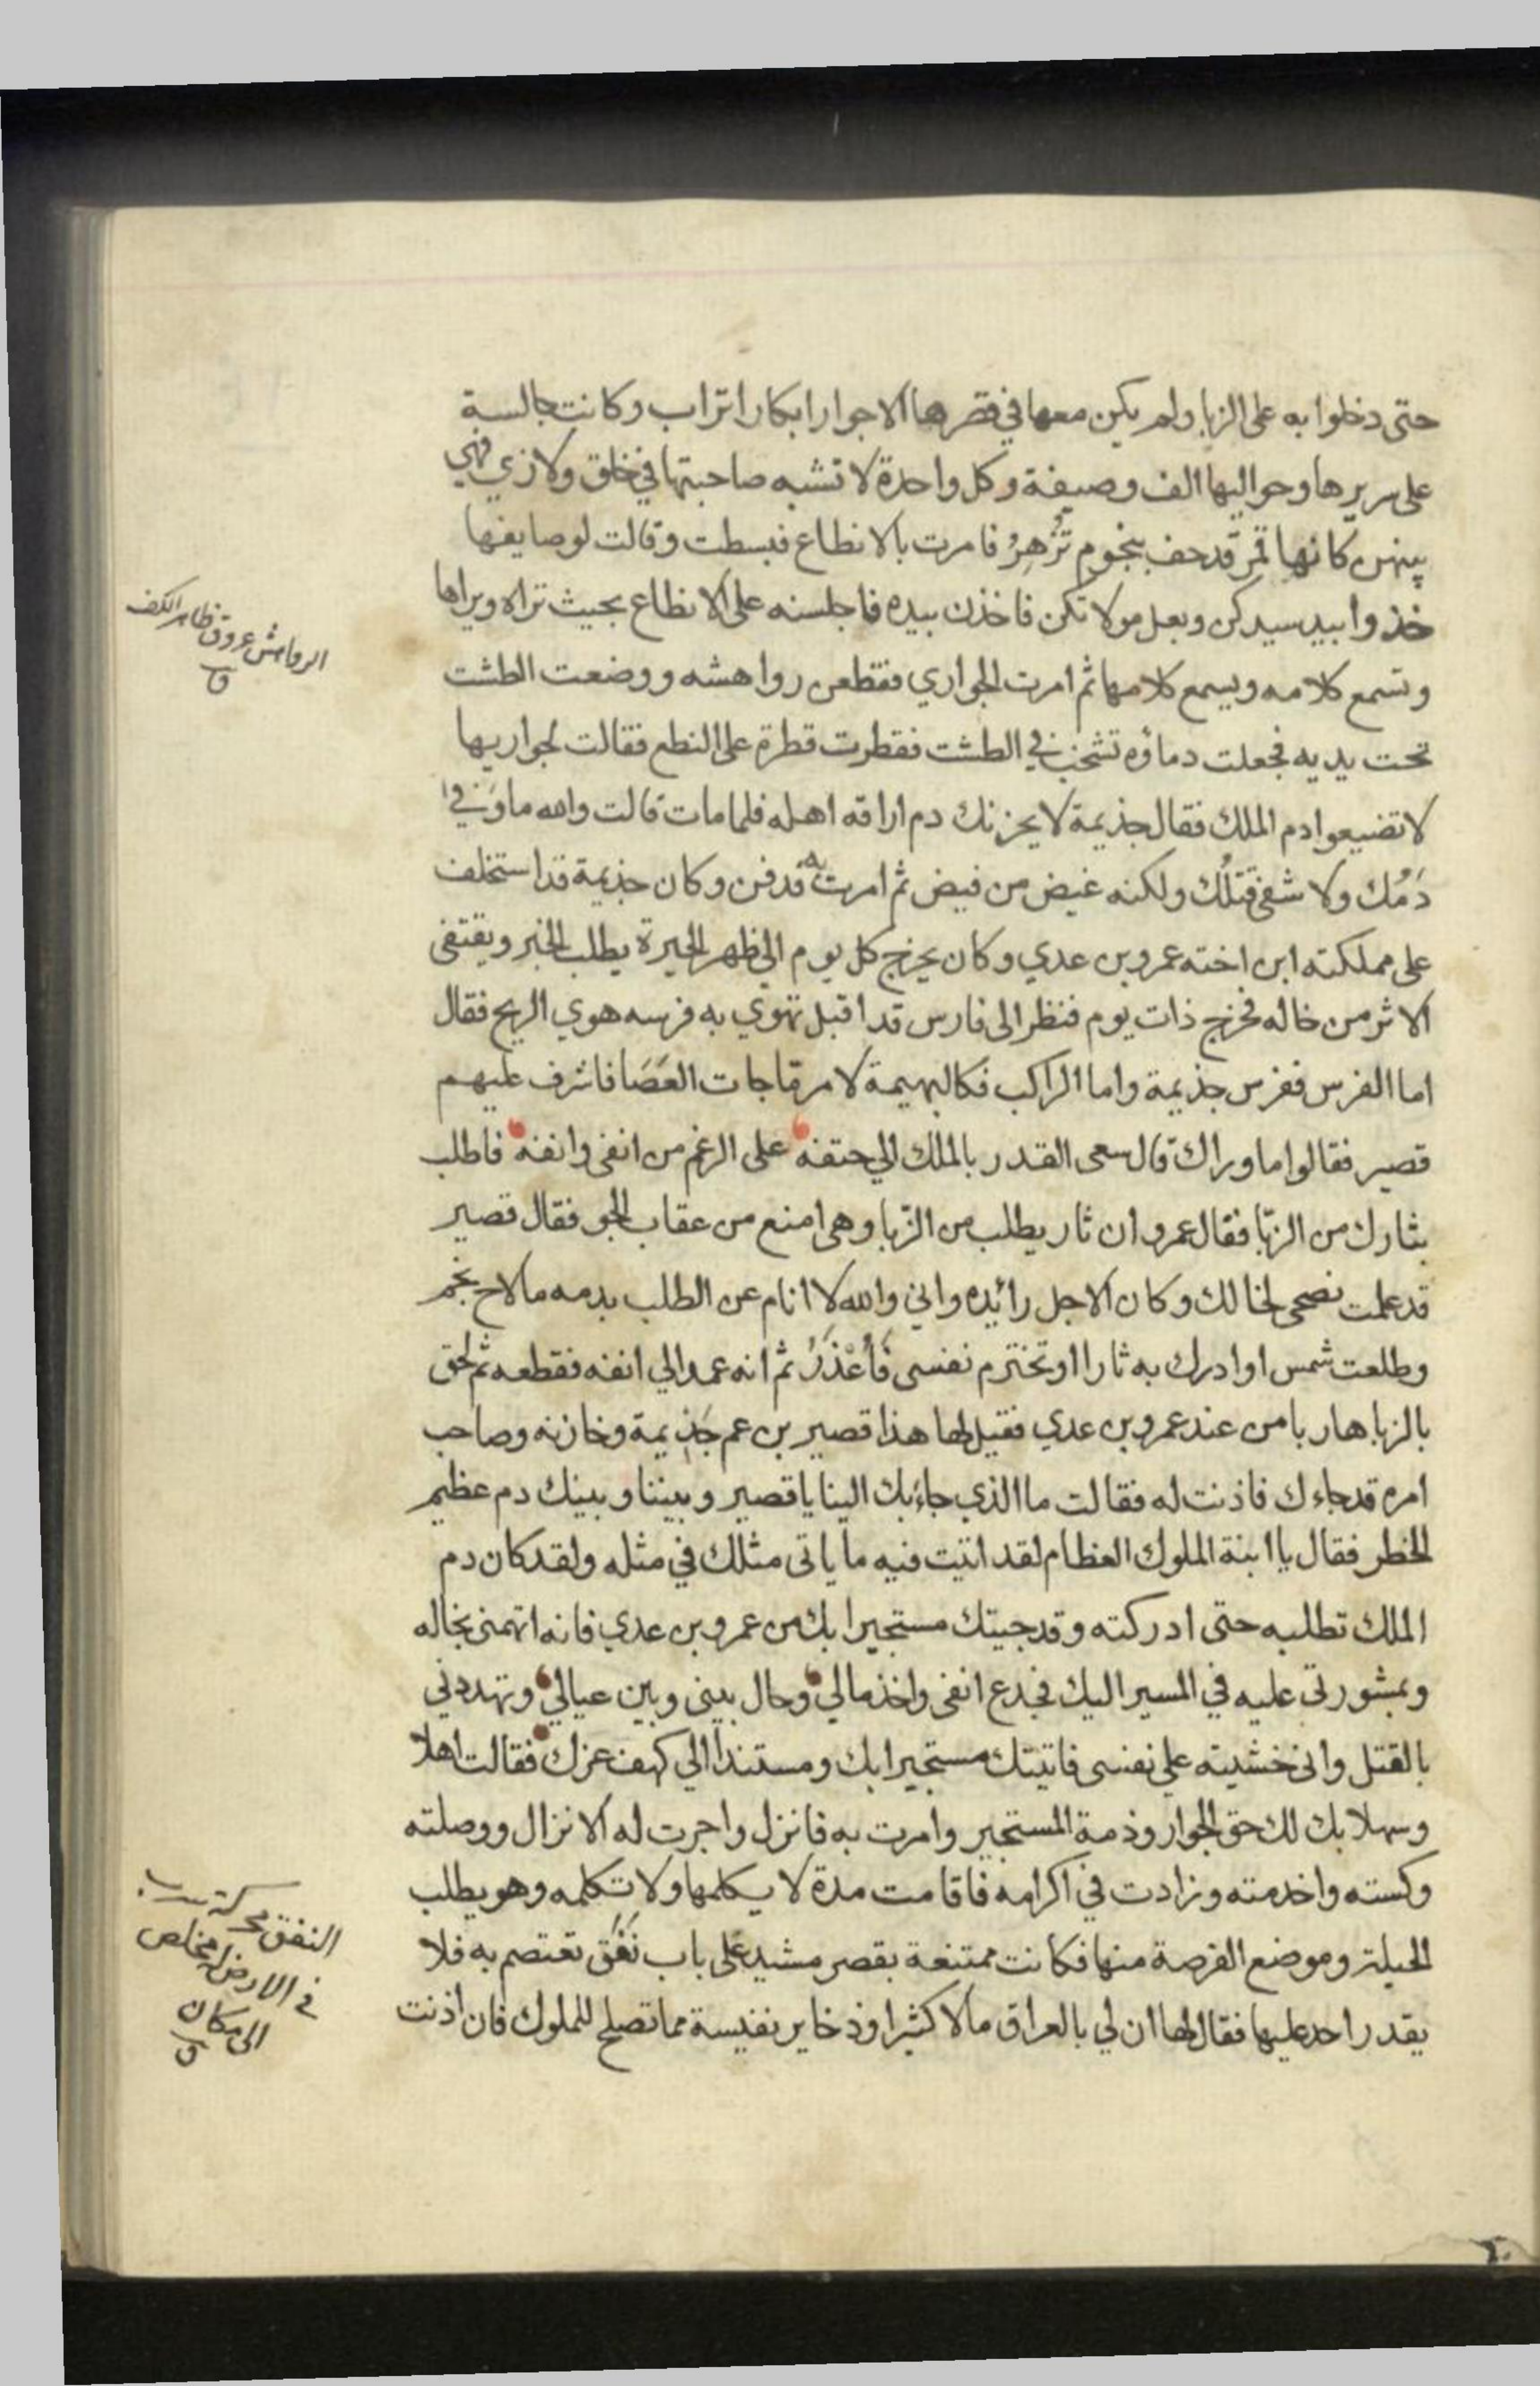 حتى دخلوا به على الزبا ولم يكن معها في قصرها الا جوار ابكار اتراب وكانت جالسة
على سريرها وحواليها الف وصيفة وكل واحدة لا تشبه صاحبتها في خلق ولا زي فهي
بينهن كانها قمر قد حف بنجوم تُزْهِرُ فامرت بالانطاع فبسطت وقالت لوصايفها
خذوا بيد سيدكن وبعل مولاتكن فاخذن بيده فاجلسنه على الانطاع بحيث تراه ويراها
وتسمع كلامه ويسمع كلامها ثم امرت الجواري فقطعن رواهشه ووضعت الطشت
تحت يديه فجعلت دماؤه تشخب في الطشت فقطرت قطرة على النطع فقالت لجواريها
لا تضيعوا دم الملك فقال جذيمة لا يحزنك دم اراقه اهله فلما مات قالت والله ما وَفى
دَمُك ولا شفى قتلُك ولكنه غيض من فيض ثم امرت به فدفن وكان جذيمة قد استخلف
على مملكته ابن اخته عمرو بن عدي وكان يخرج كل يوم الى ظهر الحيرة يطلب الخبر ويقتفى
الاثر من خاله فخرج ذات يوم فنظر الى فارس قد اقبل تهوي به فرسه هوي الريح فقال
اما الفرس ففرس جذيمة واما الراكب فكالبهيمة لامر ما جات العَصَا فاشرف عليهم
قصير فقالوا ما وراك قال سعى القدر بالملك الي حتفه على الرغم من انفى وانفه فاطلب
بثارك من الزبّا فقال عمرو ان ثار يطلب من الزّبا وهى امنع من عقاب الجو فقال قصير
قد علمت نصحى لخالك وكان الاجل رائده واني والله لا انام عن الطلب بدمه ما لاح نجم
وطلعت شمس او ادرك به ثارا او تخترم نفسى فَأُعْذَرُ ثم انه عمد الي انفه فقطعه ثم لحق
بالزبا هاربا من عند عمرو بن عدي فقيل لها هذا قصير بن عم جَذِيمة وخازنه وصاحب
امره قد جاءك فاذنت له فقالت ما الذي جاء بك الينا يا قصير وبيننا وبينك دم عظيم
الخطر فقال يا ابنة الملوك العظام لقد اتيت فيه ما ياتى مثلك في مثله ولقد كان دم
الملك تطلبه حتى ادركته وقد جيتك مستجيرا بك من عمرو بن عدي فانه اتهمنى بخاله
وبمشورتي عليه في المسير اليك فجدع انفى واخذ مالي وحال بينى وبين عيالي وتهددني
بالقتل وانى خشيته على نفسى فاتيتك مستجيرا بك ومستنداً الي كهف عزك فقالت اهلا
وسهلا بك لك حق الجوار وذمة المستجير وامرت به فانزل واجرت له الانزال ووصلته
وكسته واخدمته وزادت في اكرامه فاقامت مدة لا يكلمها ولا تكلمه وهو يطلب
الحيلة وموضع الفرصة منها فكانت ممتنعة بقصر مشيد على باب نَفَق تعتصم به فلا
يقدر احد عليها فقال لها ان لي بالعراق مالا كثيرا وذخاير نفيسة مما تصلح للملوك فان اذنت
الرواهش عروق ظاهر الكف
ق
النفق محركة سرب
في الارض له مخلص
الى مكان
ق